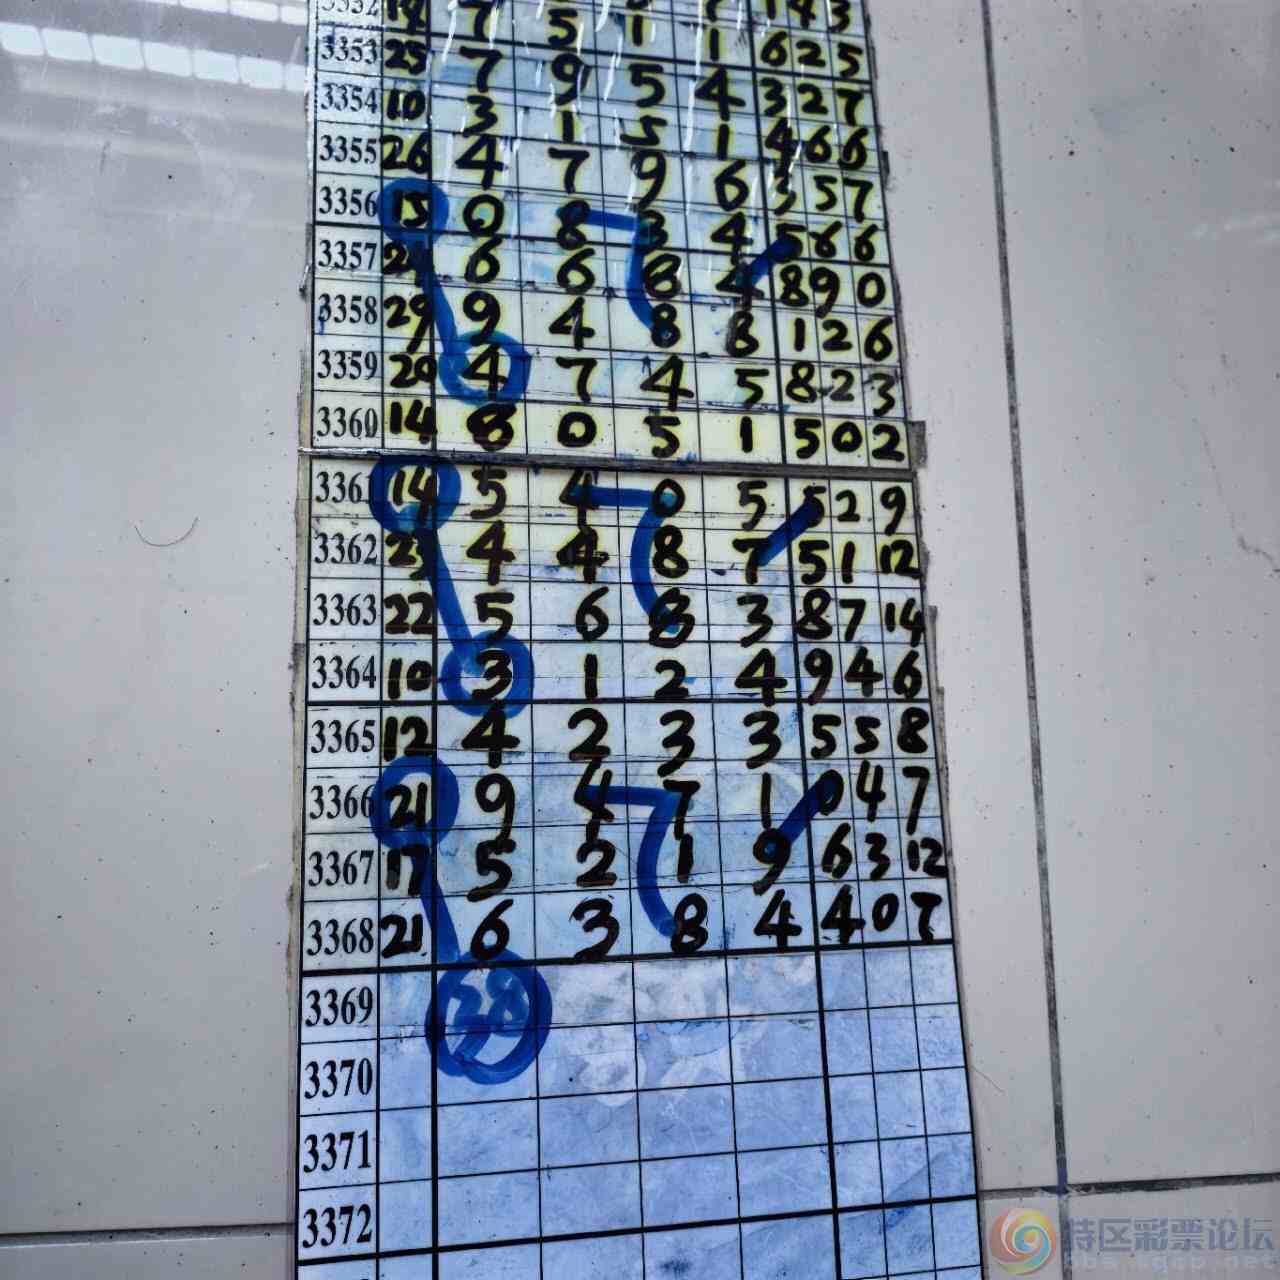 7 1 4 3
3352 14 7 5 1 1 6 2 5
3353 25 7 9 5 4 3 2 7
3354 10 3 1 5 1 4 6 6
3355 26 4 7 9 6 3 5 7
3356 15 0 8 3 4 5 6 6
3357 24 6 6 8 4 8 9 0
3358 29 9 4 8 8 1 2 6
3359 20 4 7 4 5 8 2 3
3360 14 8 0 5 1 5 0 2
3361 14 5 4 0 5 5 2 9
3362 23 4 4 8 7 5 1 12
3363 22 5 6 8 3 8 7 14
3364 10 3 1 2 4 9 4 6
3365 12 4 2 3 3 5 5 8
3366 21 9 4 7 1 0 4 7
3367 17 5 2 1 9 6 3 12
3368 21 6 3 8 4 4 0 7
3369 38
3370
3371
3372
特区彩票论坛
bbs.tqcp.net